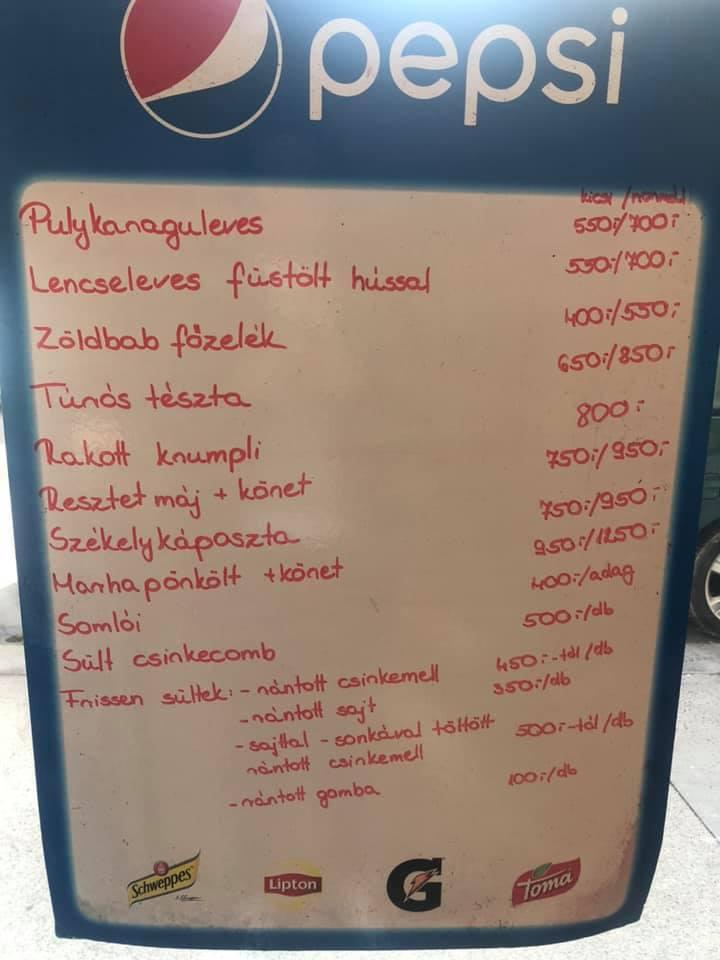 pepsi
kicsi / normál
Pulykaraguleves 550.-/700.-
Lencseleves füstölt hússal 550.-/700.-
Zöldbab főzelék 400.-/550.-
Túrós tészta 650.-/850.-
Rakott krumpli 800.-
Resztelt máj + köret 750.-/950.-
Székelykáposzta 750.-/950.-
Marhapörkölt + köret 950.-/1250.-
Somlói 400.-/adag
Sült csirkecomb 500.-/db
Frissen sültek: - rántott csirkemell 450.-tól/db
- rántott sajt 350.-/db
- sajttal - sonkával töltött 500.-tól/db
rántott csirkemell
- rántott gomba 100.-/db
Schweppes Lipton G Toma